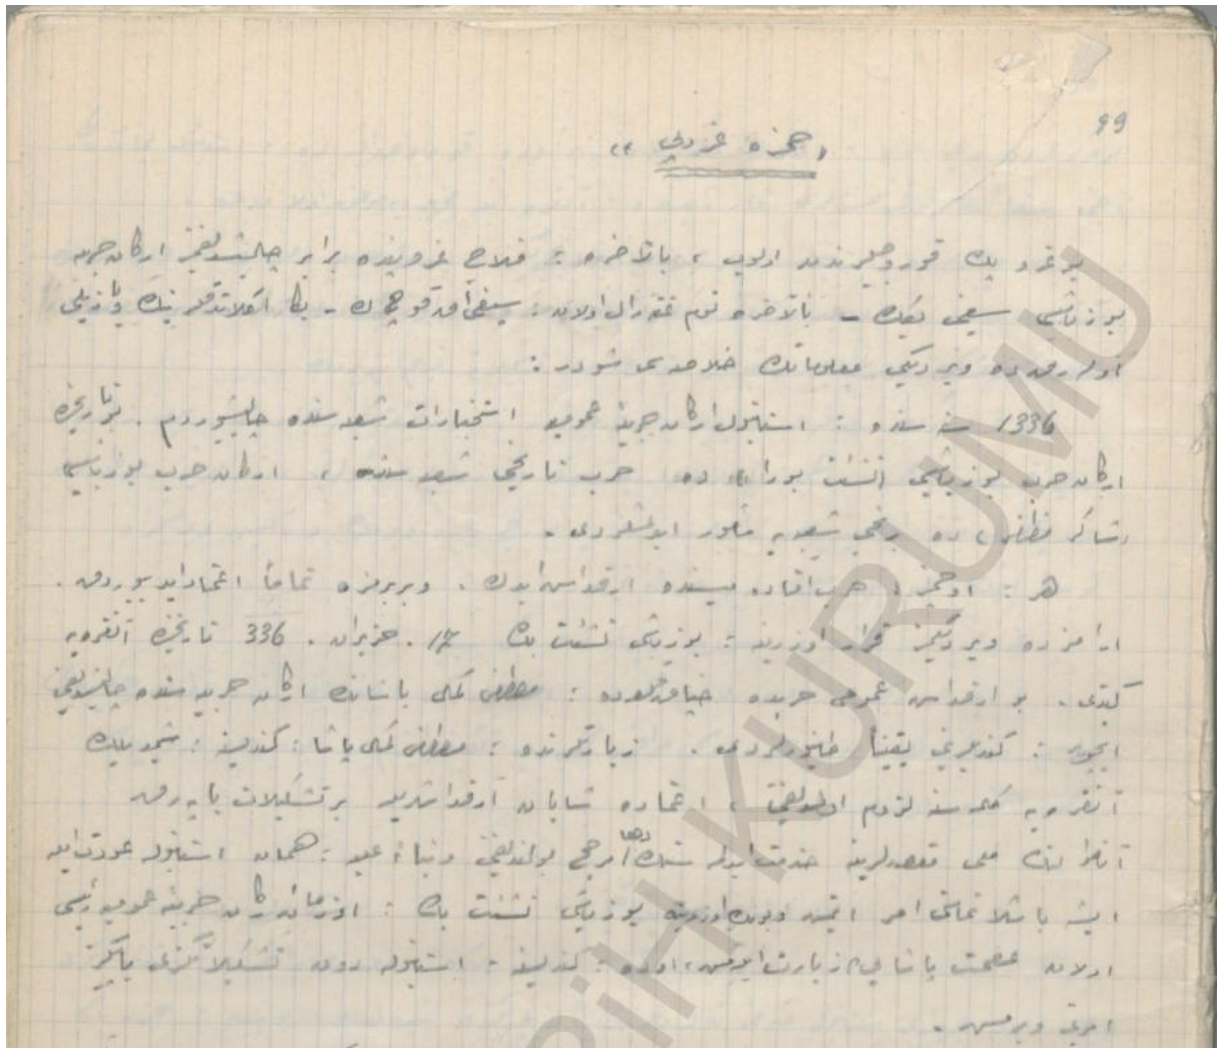 99
« حمزه غروپی »
بو غروپك قوروجیلرندن اولوب ، بالآخره : فلاح غروپنده برابر چالیشدیغمز اركان حربیه
یوزباشی سیفی بك - بالآخره تومغنرال اولان : سیفی آققوچ ك - بڭا آڭلاتدقلرینك و یازیلی
اوله رق ده ویردیكی معلوماتك خلاصه سی شودر :
1336 سنه سنده : استانبول اركان حربیهٔ عمومیه استخبارات شعبه سنده چالیشیوردم . بو تاریخده
اركان حرب یوزباشی نشئت بورا ده حرب تاریخی شعبه سنده ، اركان حرب یوزباشی
ده شعبه یه مأمور ایدیلمشلردی .
هر : اوچمز ، حرب آقاده میسنده آرقداش ایدك . و بربرمزه تماماً اعتماد ایدییوردق .
آرامزده ویردیكمز قرار اوزرینه : یوزباشی نشئت بك . حزیران . 336 تاریخنده آنقره یه
كیتدی . بو آرقداش عمومی حربده : مصطفی كمال پاشانك اركان حربیه سنده چالیشدیغی
ایچون : كندیلرینی یقیناً طانییورلردی . زیارتلرنده : مصطفی كمال پاشا : كندیسنه : شیمدیلك
آنقره یه كلمه سنه لزوم اولمدیغنی ، اعتماده شایان آرقداشلریله بر تشكیلات یاپه رق
آناطولینك ملی مقصدلرینه خدمت ایدلمه سنك دها مرجح بولندیغنی و بناءً علیه : همان استانبوله عودت ایله
ایشه باشلانماسنی امر ایتمش و بونك اوزرینه یوزباشی نشئت بك : او زمان اركان حربیهٔ عمومیه رئیسی
اولان عصمت پاشایی زیارت ایتمش ، او ده : كندیسنه : استانبوله دون تشكیلاتڭزی یاپڭز
امرینی ویرمش .
TARİH KURUMU